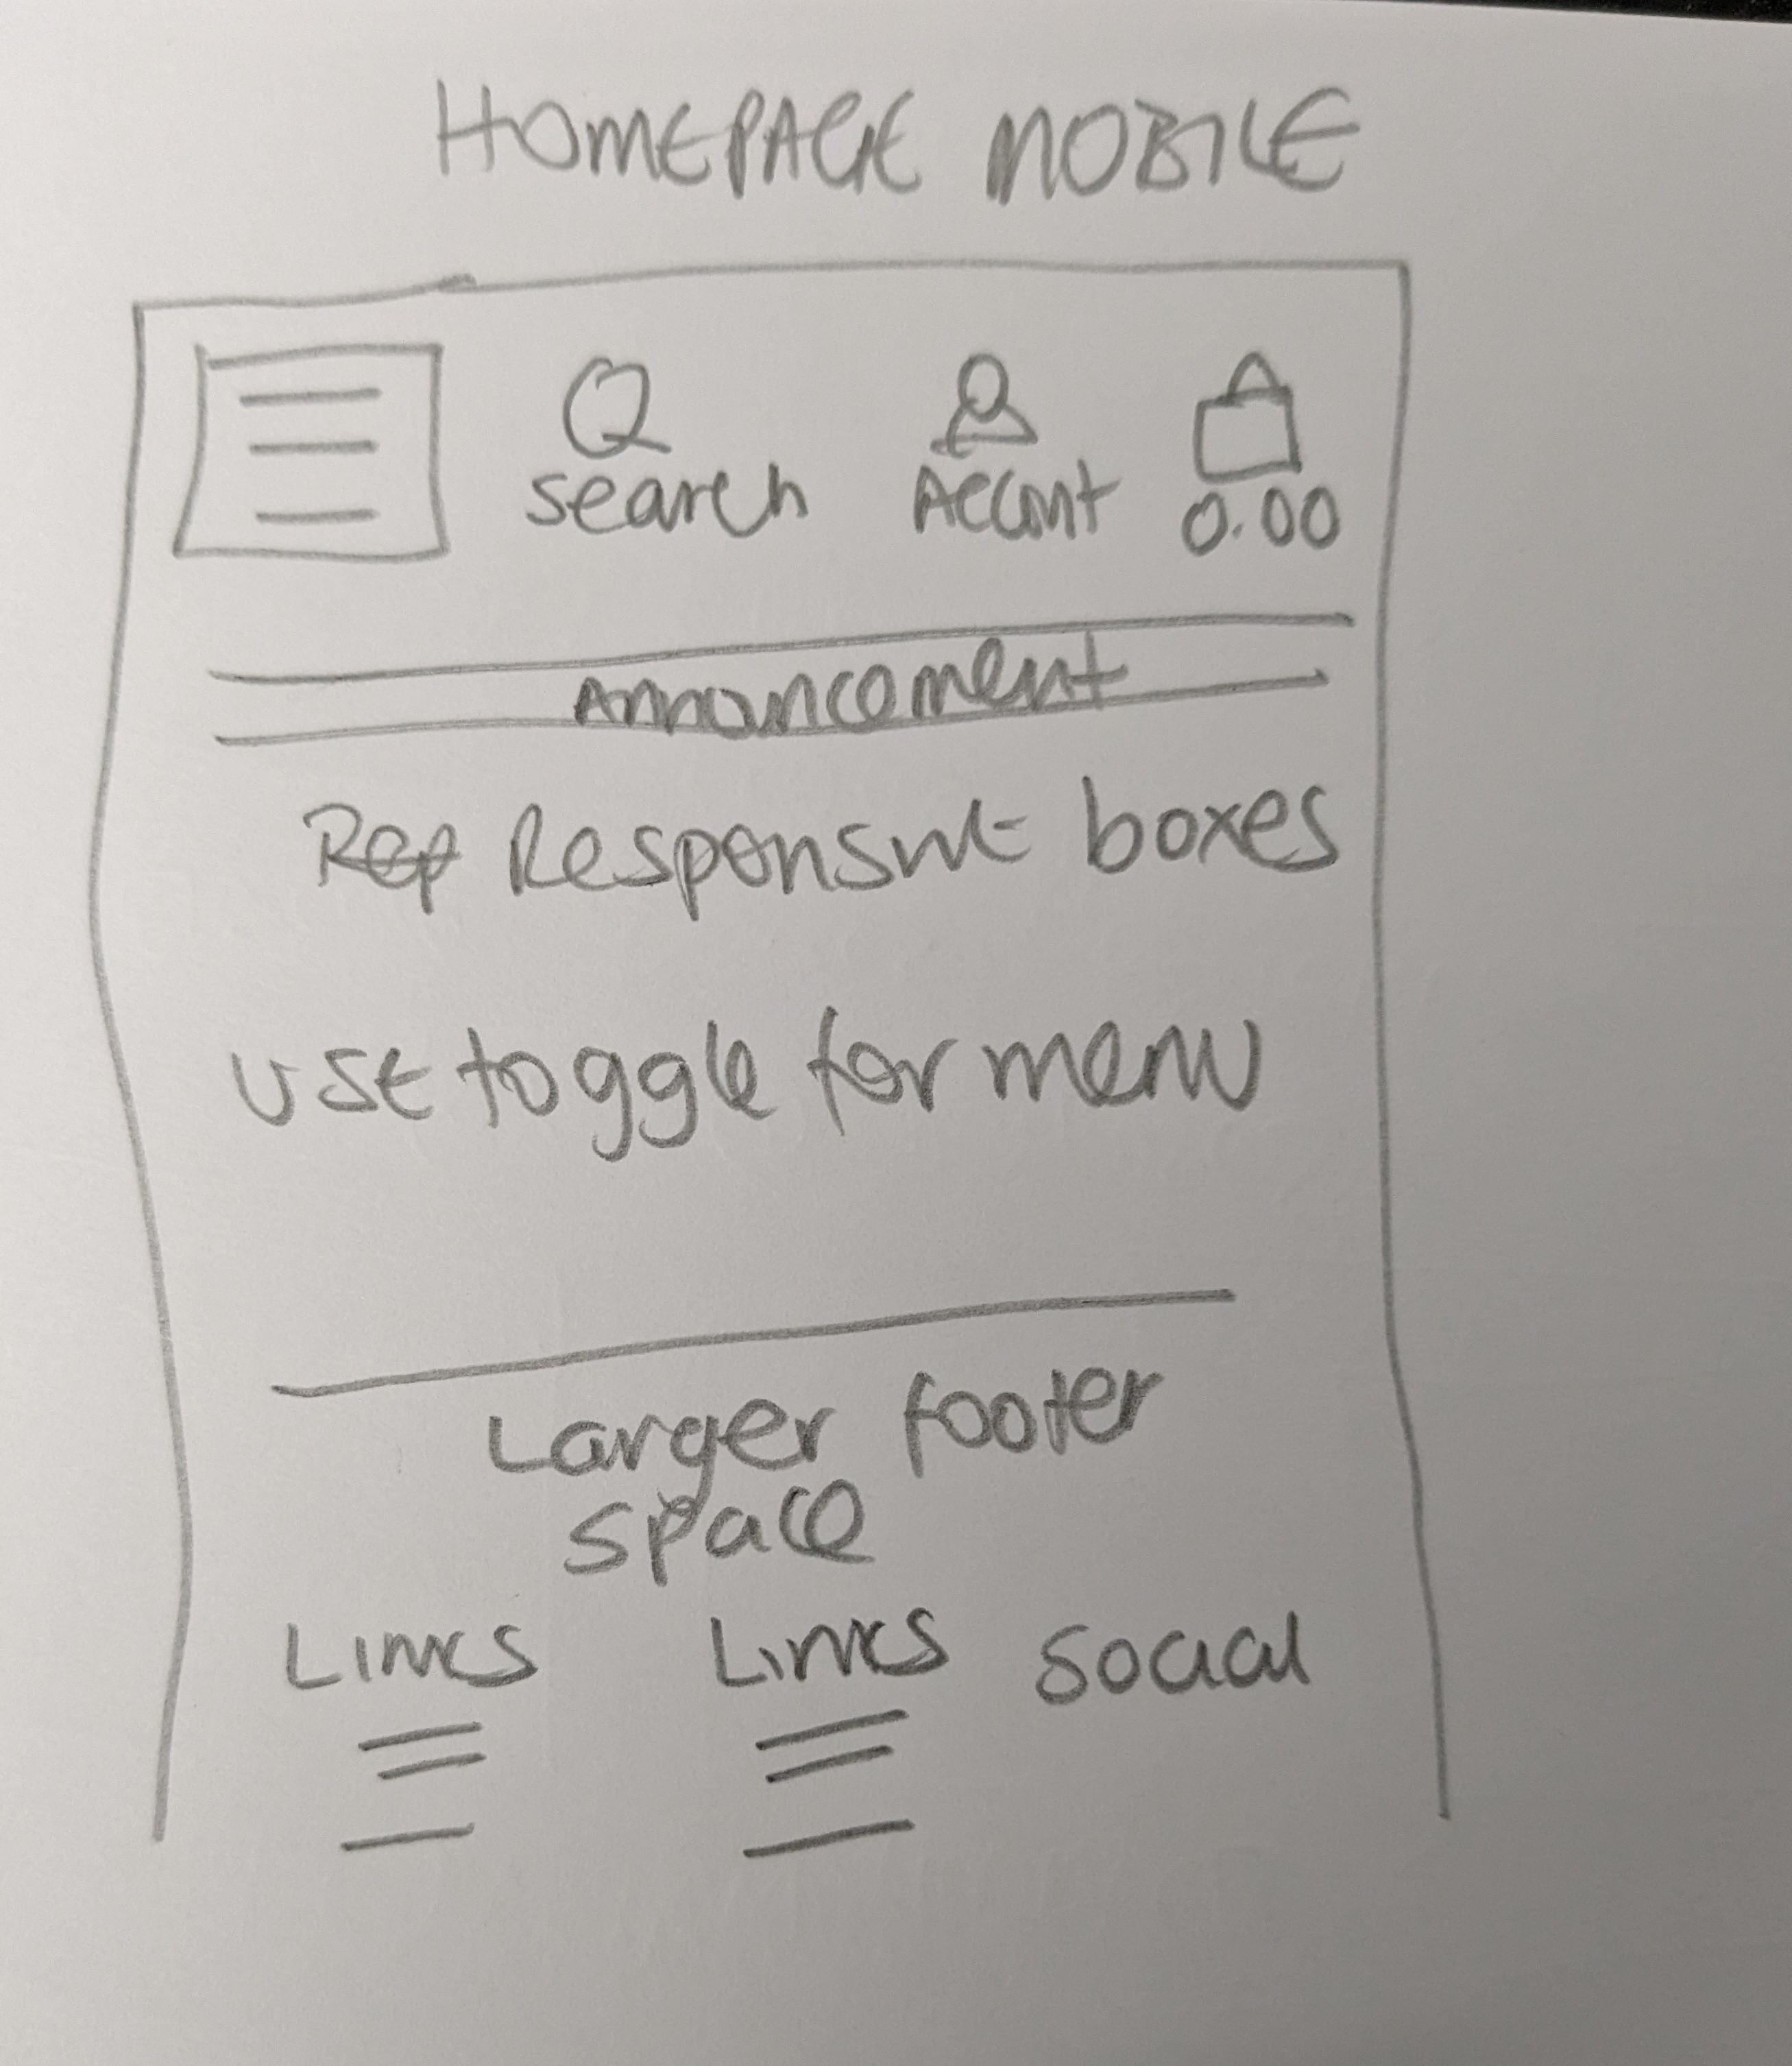 HOMEPAGE MOBILE
Search Account 0.00
Announcement
Rep Responsive boxes
use toggle for menu
Larger footer
space
Links Links Social